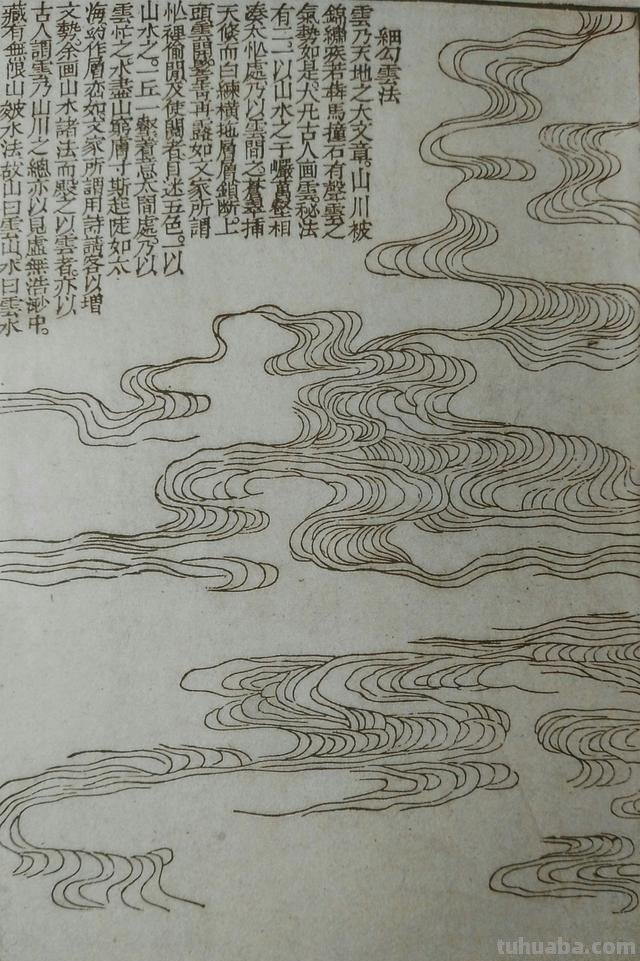 細勾雲法
雲乃天地之大文章。山川被
錦繡疾若奔馬撞石有聲雲之
氣勢如是。大凡古人画雲。秘法
有二。一以山水之千巖萬壑相
湊太忙處乃以雲間之。蒼翠插
天倏而白練橫地層層鎖断上
頭雲開。青再露如文家所謂
忙裡偷閒及使閱者目迷五色。一以
山水之。一丘一壑着意太閒處乃以
雲忙之水盡山窮膚寸斯起陡如大
海作層亦如文家所謂用詩請客以增
文勢。余画山水諸法而殿之以雲者。亦以
古人謂雲乃山川之總亦以見虛無浩渺中。
藏有無限山皴水法。故山曰雲山。水曰雲水
tuhuaba.com